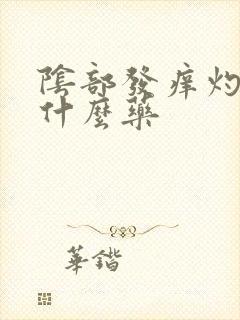 陰部發痒灼
什麼藥
華鍇